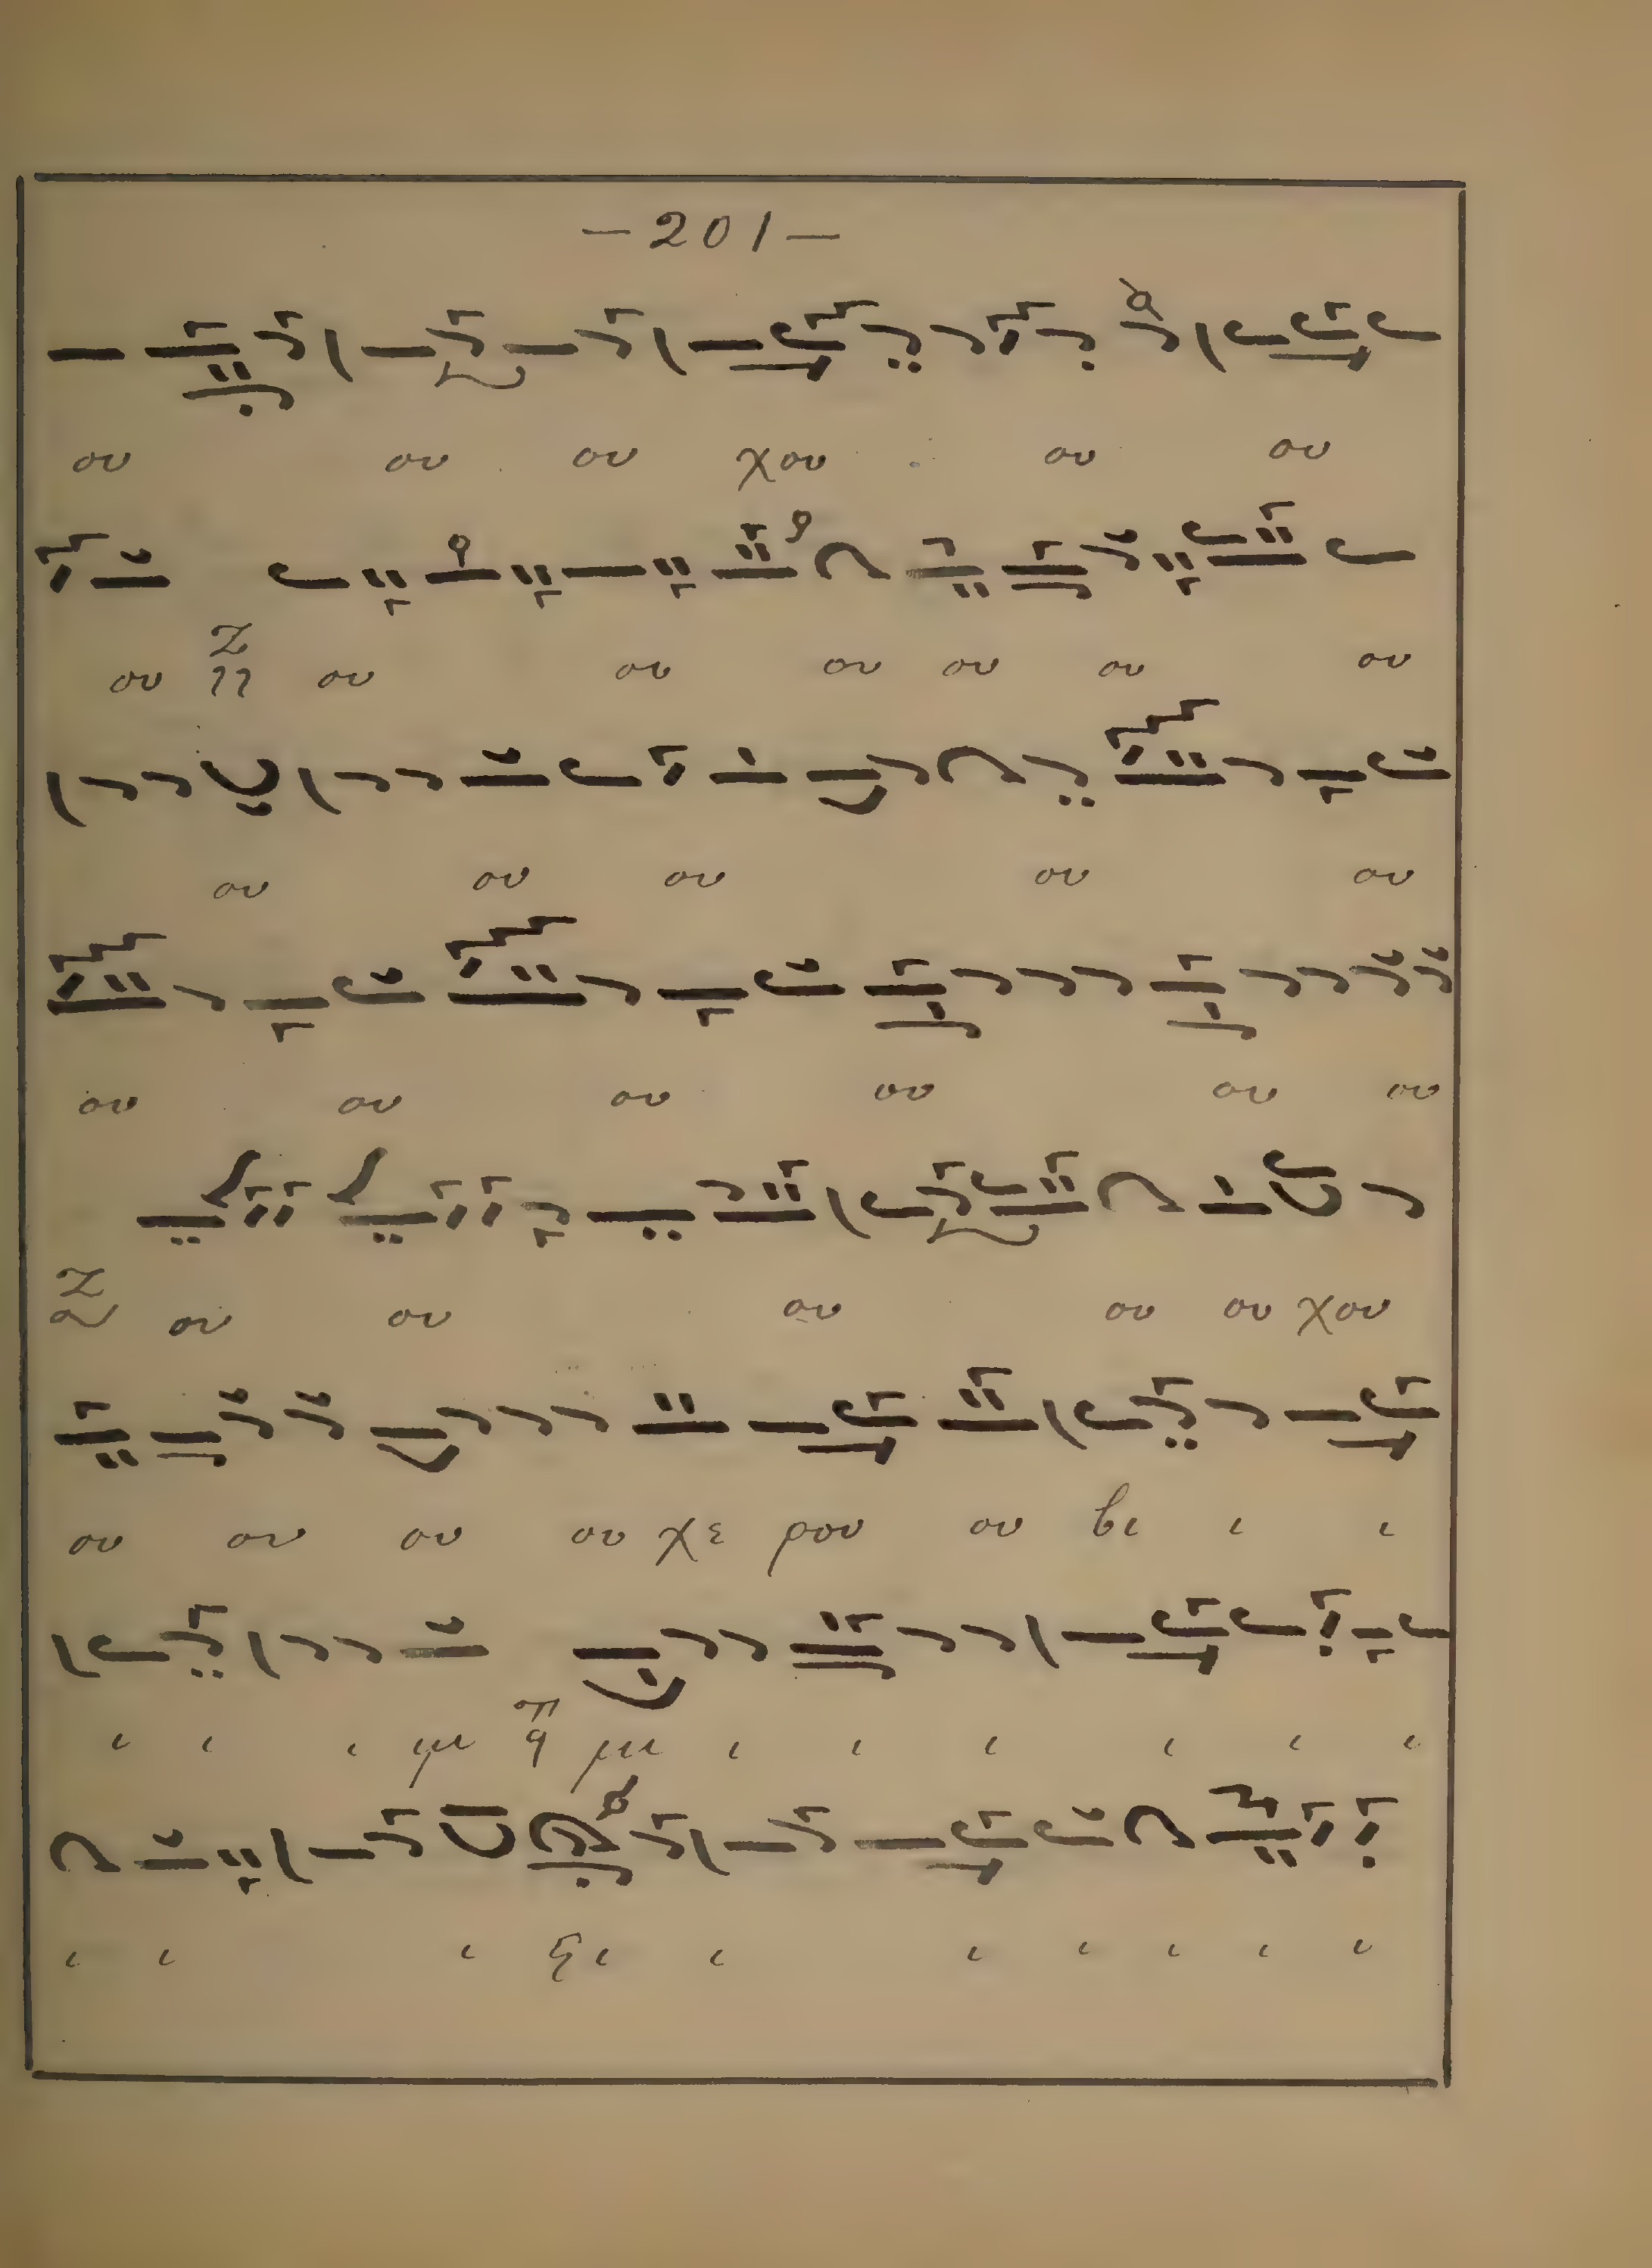 —201—
ου ου ου χου ου ου
ου ου ου ου ου ου ου
ου ου ου ου ου
ου ου ου ου ου ου
ου ου ου ου ου χου
ου ου ου ου χε ρου ου βι ι ι
ι ι ι μι μι ι ι ι ι ι ι
ι ι ι ι ι ι ι ι ι ι